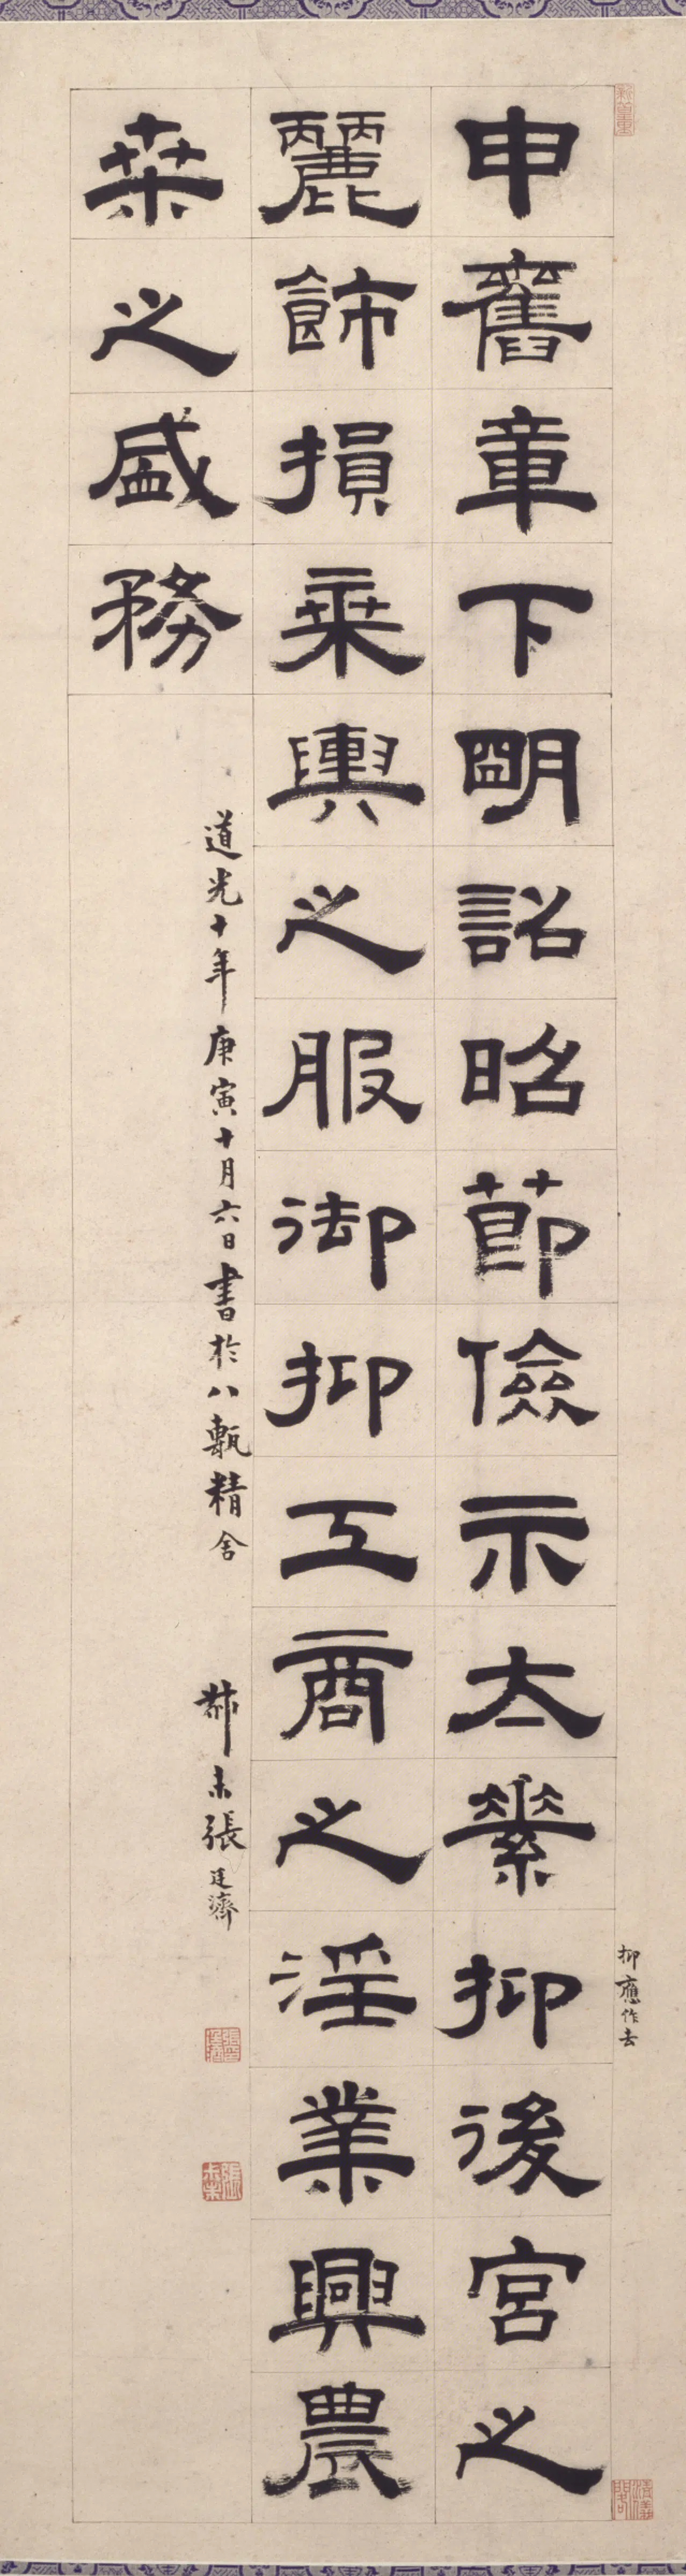 申舊章下明詔昭節儉示太素抑後宮之
麗飾損乘輿之服御抑工商之淫業興農
桒之盛務
道光十年庚寅十月六日書於八甎精舍
尗未張廷濟
抑應作去
張廷濟印
張尗未
清儀閣